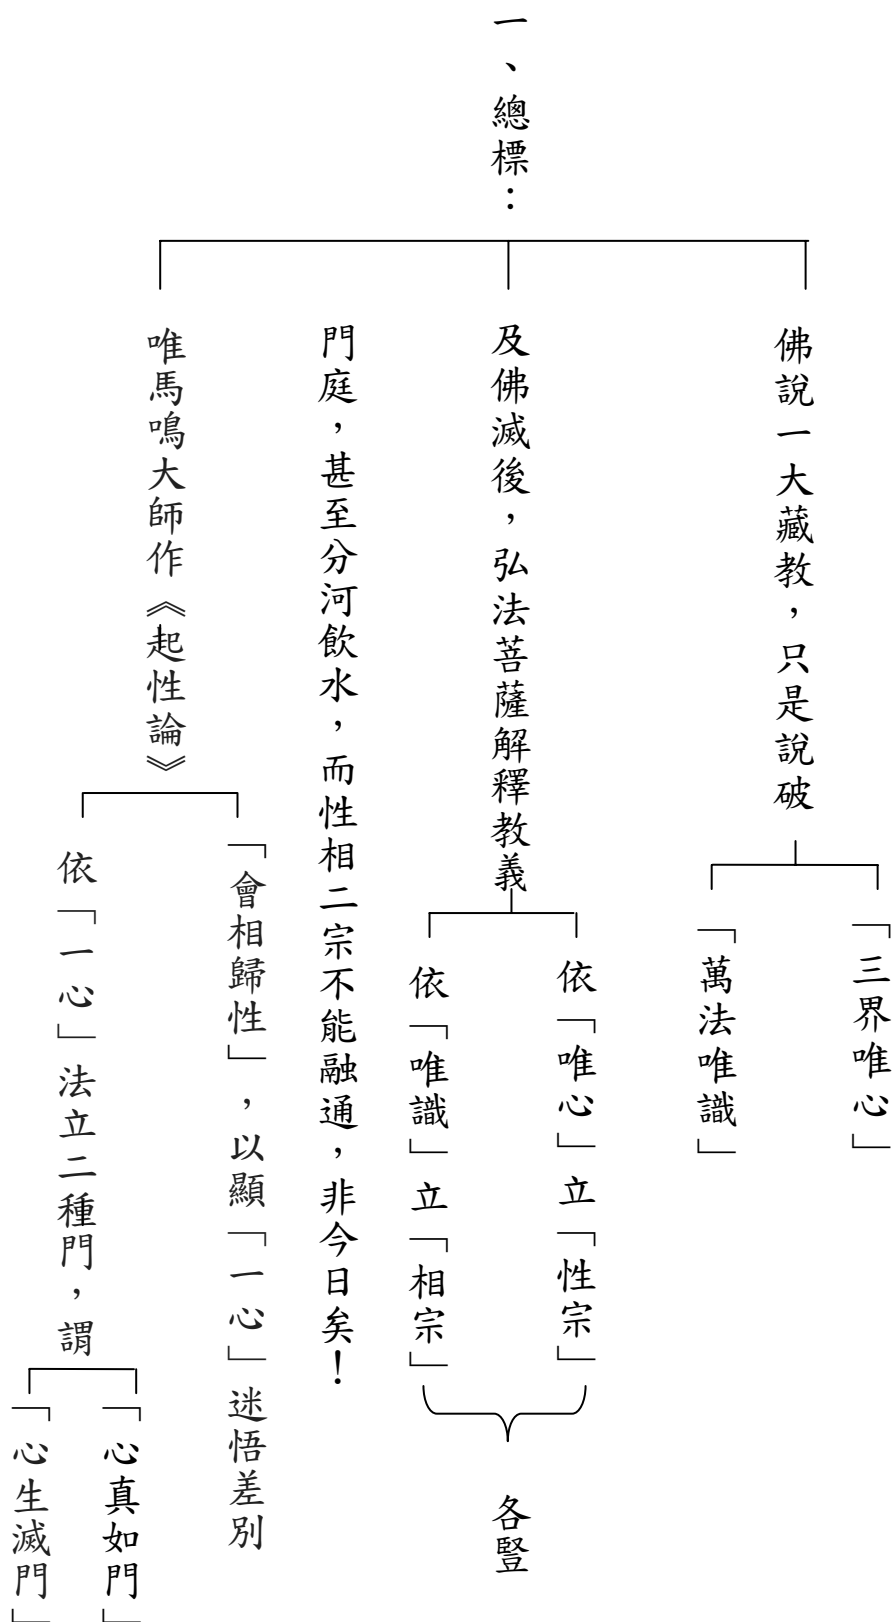 一、總標：
佛說一大藏教，只是說破
「三界唯心」
「萬法唯識」
及佛滅後，弘法菩薩解釋教義
依「唯心」立「性宗」
依「唯識」立「相宗」
各豎
門庭，甚至分河飲水，而性相二宗不能融通，非今日矣！
唯馬鳴大師作《起性論》
「會相歸性」，以顯「一心」迷悟差別
依「一心」法立二種門，謂
「心真如門」
「心生滅門」